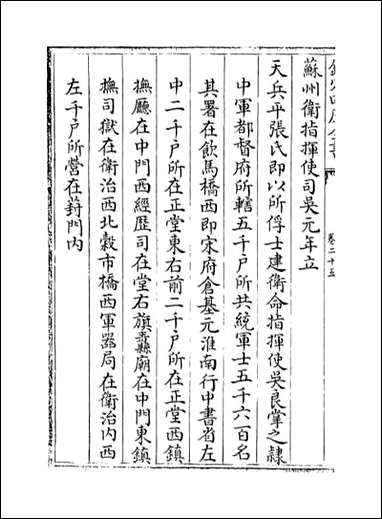 卷二十五
蘇州衛指揮使司吳元年立
天兵平張氏即以所俘士建衛命指揮使吳良掌之隸
中軍都督府所轄五千戶所共統軍士五千六百名
其署在飲馬橋西即宋府倉基元淮南行中書省左
中二千戶所在正堂東右前二千戶所在正堂西鎮
撫廳在中門西經歷司在堂右旗纛廟在中門東鎮
撫司獄在衛治西北穀市橋西軍器局在衛治內西
左千戶所營在葑門內